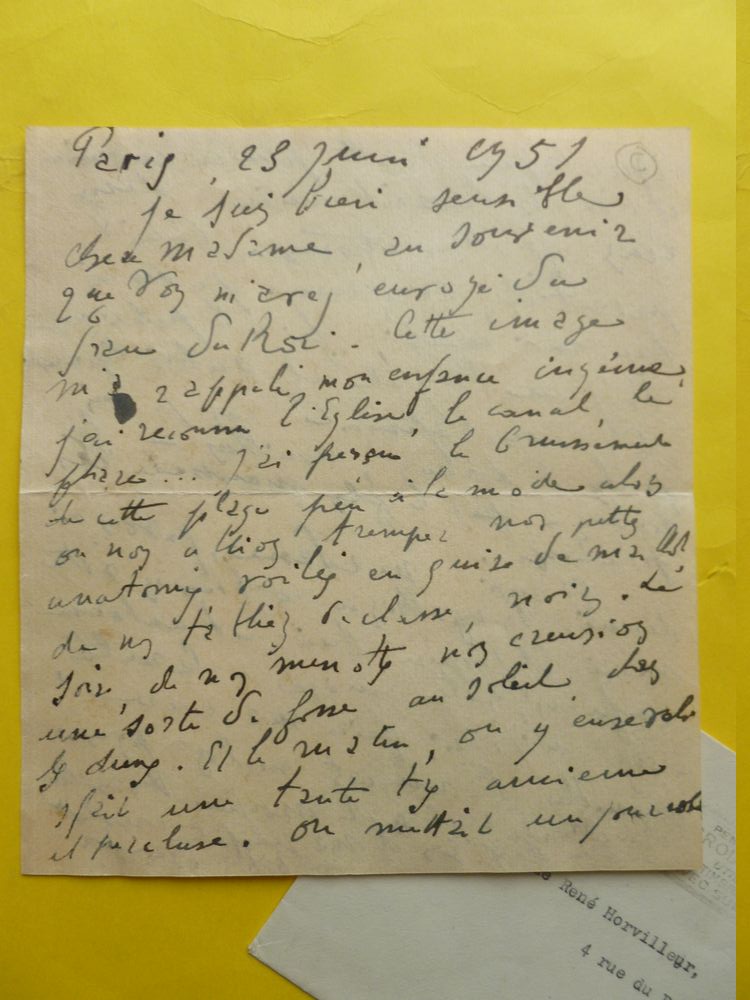 Paris, 23 Juin 1951
C
Je suis bien sensible
chère madame, au souvenir
que vous m'avez envoyé du
grau du Roi. Cette image
m'a rappelé mon enfance ingénue,
j'ai reconnu l'Eglise, le canal, le
phare... j'ai perçu le bruissement
de cette plage peu à la mode alors
où nous allions tremper nos petites
anatomies voilées en guise de maillot
de nos tabliers de classe, noirs. Le
soir, de nos menottes nous creusions
une sorte de fosse au soleil dans
les dunes. Et le matin, on y ensevelis
sait une tante très ancienne
et percluse. On mettait un
René Horvilleur,
4 rue du